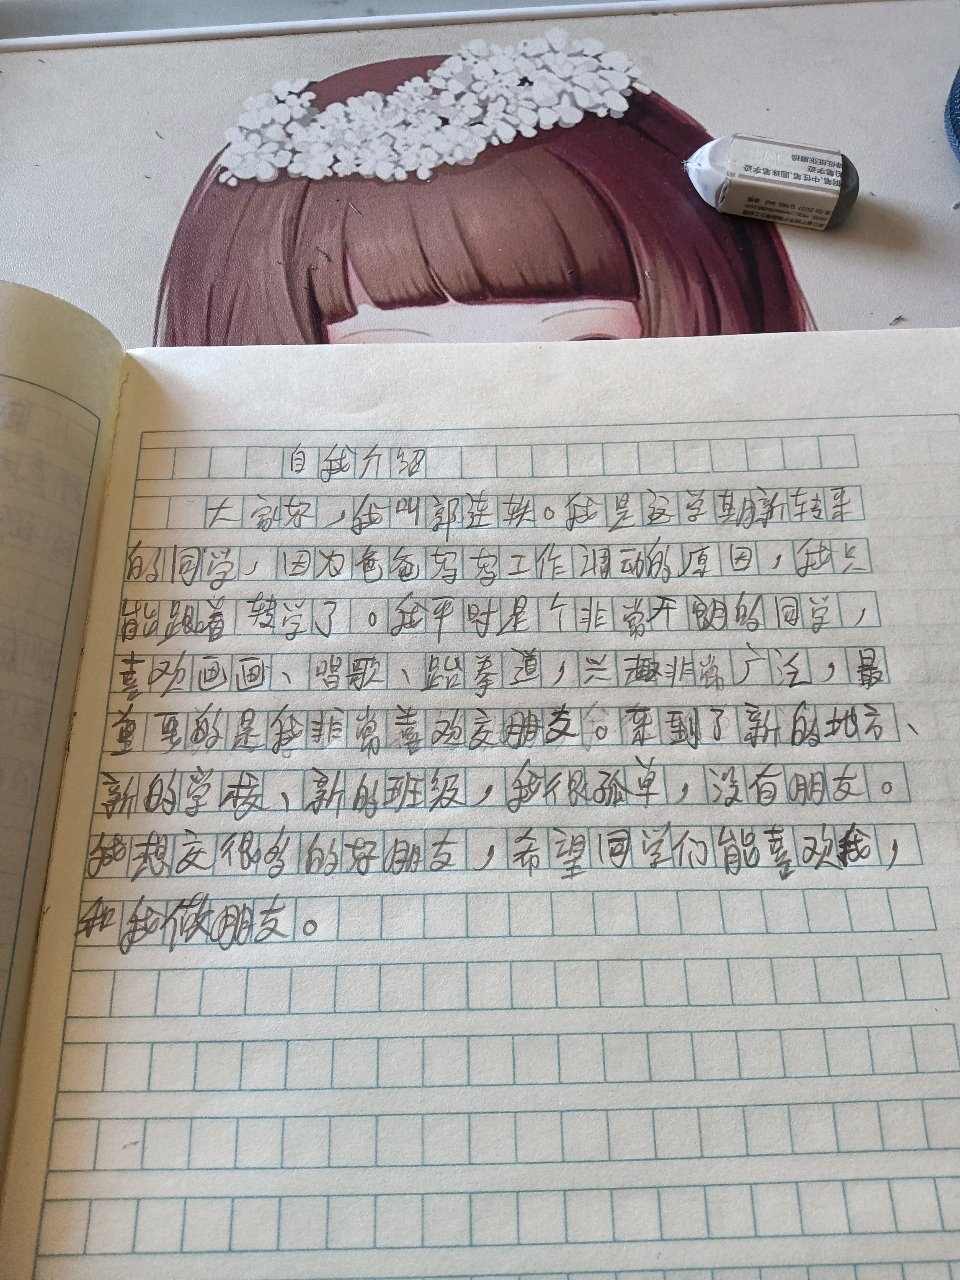 自我介绍
大家好，我叫郭连轶。我是这学期新转来
的同学，因为爸爸妈妈工作调动的原因，我只
能跟着转学了。我平时是个非常开朗的同学，
喜欢画画、唱歌、跆拳道，兴趣非常广泛，最
重要的是我非常喜欢交朋友。来到了新的地方、
新的学校、新的班级，我很孤单，没有朋友。
我想交很多的好朋友，希望同学们能喜欢我，
和我做朋友。